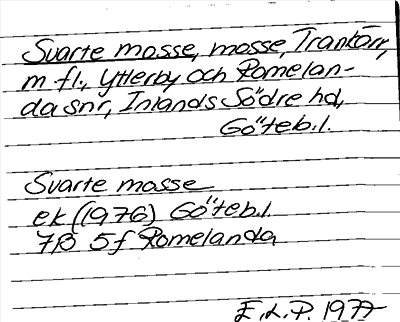 Svarte mosse, mosse, Trankärr,
m fl., Ytterby och Romelan-
da snr, Inlands Södre hd,
Göteb.l.
Svarte mosse
ek (1976) Göteb.l.
7B 5f Romelanda
E.L.P. 1977